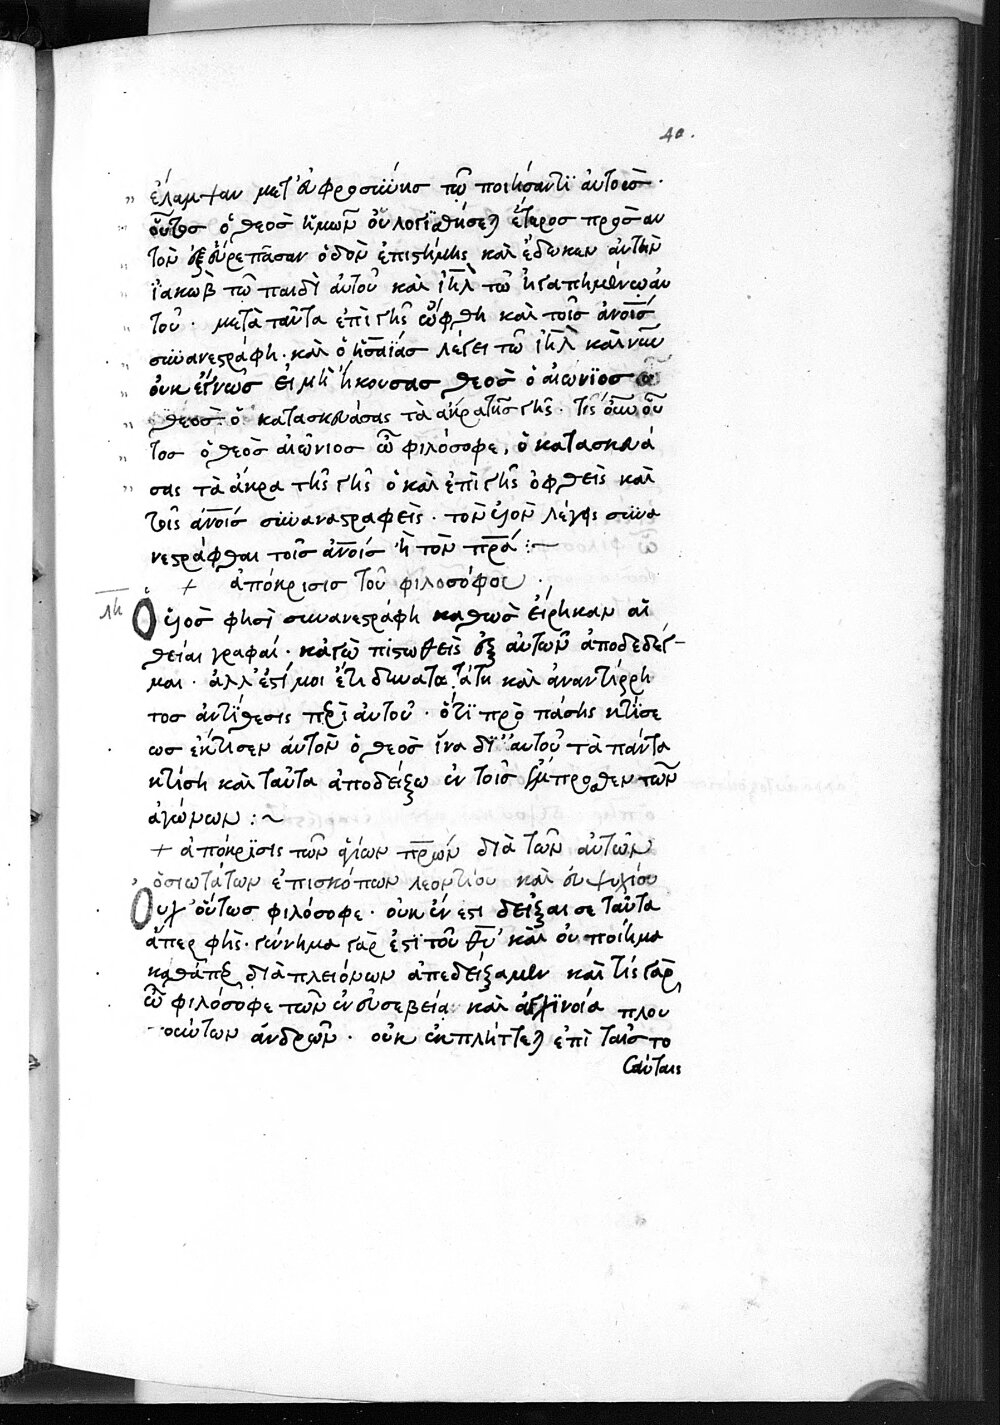 40.
ἔλαμψαν μετ' εὐφροσύνης τῷ ποιήσαντι αὐτούς·
οὗτος ὁ θεὸς ἡμῶν οὐ λογισθήσεται ἕτερος πρὸς αυ
τὸν ἐξεύρε πᾶσαν ὁδὸν ἐπιστήμης καὶ ἔδωκεν αὐτὴν
ἰακὼβ τῷ παιδὶ αὐτοῦ καὶ ιηλ τῷ ἠγαπημένω αυ
τοῦ· μετὰ ταῦτα ἐπὶ γῆς ὤφθη καὶ τοῖς ανοις
συνανεστράφη· καὶ ὁ ἡσαΐας λέγει τῷ ιηλ καὶ νῦν
οὐκ ἔγνως εἰ μὴ ἤκουσας θεὸς ὁ αἰώνιος
θεὸς ὁ κατασκευάσας τὰ ἄκρα τῆς γῆς· τίς οὖν οὗ
τος ὁ θεὸς αἰώνιος ὦ φιλόσοφε, ὁ κατασκευά
σας τὰ ἄκρα τῆς γῆς ὁ καὶ ἐπὶ γῆς ὀφθεὶς καὶ
τοῖς ανοις συναναστραφεὶς· τὸν υἱὸν λέγεις συνα
νεστράφθαι τοῖς ανοις ἢ τὸν πρα :~
+ ἀπόκρισις τοῦ φιλοσόφου·
λη Ὁ υἱός φησὶ συνανεστράφη καθὼς εἰρήκαν αἱ
θεῖαι γραφαί· κἀγὼ πισωθεὶς ἐξ αὐτῶν ἀποδέδεγ
μαι· ἀλλ' ἔστι μοι ἔτι δυνατωτάτη καὶ ἀναντίρρη
τος ἀντίθεσις περὶ αὐτοῦ· ὅτι πρὸ πάσης κτίσε
ως ἔκτισεν αὐτὸν ὁ θεὸς ἵνα δι' αὐτοῦ τὰ πάντα
κτίση καὶ ταῦτα ἀποδείξω ἐν τοῖς ἔμπροσθεν τῶν
ἀγώνων :~
+ ἀπόκρισις τῶν ἁγίων πρων διὰ τῶν αὐτῶν
ὁσιωτάτων ἐπισκόπων λεοντίου καὶ εὐψυχίου
Οὐχ' οὕτως φιλόσοφε· οὐκ ἔνεστι δεῖξαι σε ταῦτα
ἅπερ φῂς· γέννημα γὰρ ἐστὶ τοῦ θυ καὶ οὐ ποίημα
καθάπερ διὰ πλειόνων ἀπεδείξαμεν καὶ τίς γὰρ
ὦ φιλόσοφε τῶν ἐν εὐσεβεία καὶ ἀγχινοία πλου
τούντων ἀνδρῶν· οὐκ ἐκπλήττεται ἐπὶ ταῖς το
σαύταις